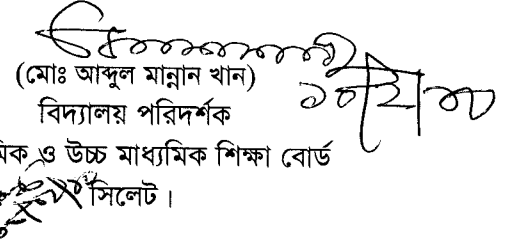 (মোঃ আব্দুল মান্নান খান)
বিদ্যালয় পরিদর্শক
ও উচ্চ মাধ্যমিক শিক্ষা বোর্ড
সিলেট।